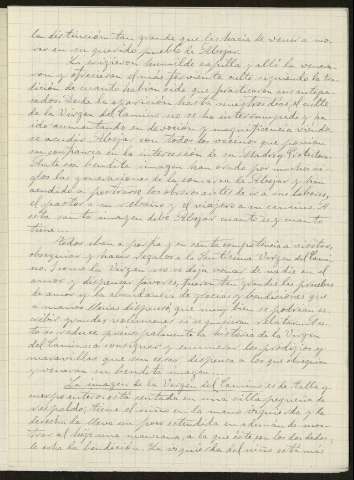 la distinción tan grande que les hacía de venir a mo-
rar en su querido pueblo de Abejar.
La erigieron humilde capilla y allí la venera-
ron y ofrecieron el más ferviente culto siguiendo la tra-
dición de cuanto habían oído que practicaron sus antepa-
sados. Desde la aparición hasta nuestros días, el culto
de la Virgen del Camino no se ha interrumpido y ha
ido aumentando en devoción y magnificencia, viendo-
se acudir a Abejar con todos los vecinos que ponían
su confianza en la intercesión de su Madre y Protectora.
Ante esa bendita imagen han orado por muchos si-
glos las generaciones de la comarca de Abejar y han
acudido a postrarse los labradores antes de ir a sus labores,
el pastor a su rebaño y el viajero a su camino. A
esta santa imagen debe Abejar cuanto es y cuanto
tiene.
Todos iban a porfía y en santa competencia a visitar,
obsequiar y hacer regalos a la Santísima Virgen del Cami-
no. Y como la Virgen no se deja vencer de nadie en el
amor y dispensar favores, fueron tan grandes las pruebas
de amor y la abundancia de gracias y bendiciones que
a manos llenas dispensó, que muy bien se podrían es-
cribir grandes volúmenes si se quisieran relatar. A es-
to se reduce principalmente la historia de la Virgen
del Camino: a consignar y enumerar los prodigios y
maravillas que sin cesar dispensa a los que obsequian
y veneran su bendita imagen.
La imagen de la Virgen del Camino es de talla y
cuerpo entero: está sentada en una silla pequeña de
respaldo; tiene el niño en la mano izquierda y la
derecha la lleva un poco extendida en ademán de mos-
trar al hijo una manzana, a la que éste con los dos dedos,
le echa la bendición. La izquierda del niño está mas